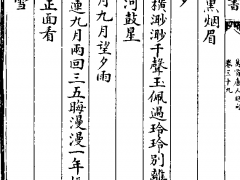 書
卷三十九
黑烟眉
夕
橫渺渺千聲玉佩過玲玲別離
河鼓星
月九月望夕雨
連九月兩回三五晦漫漫一年
正面看
雪